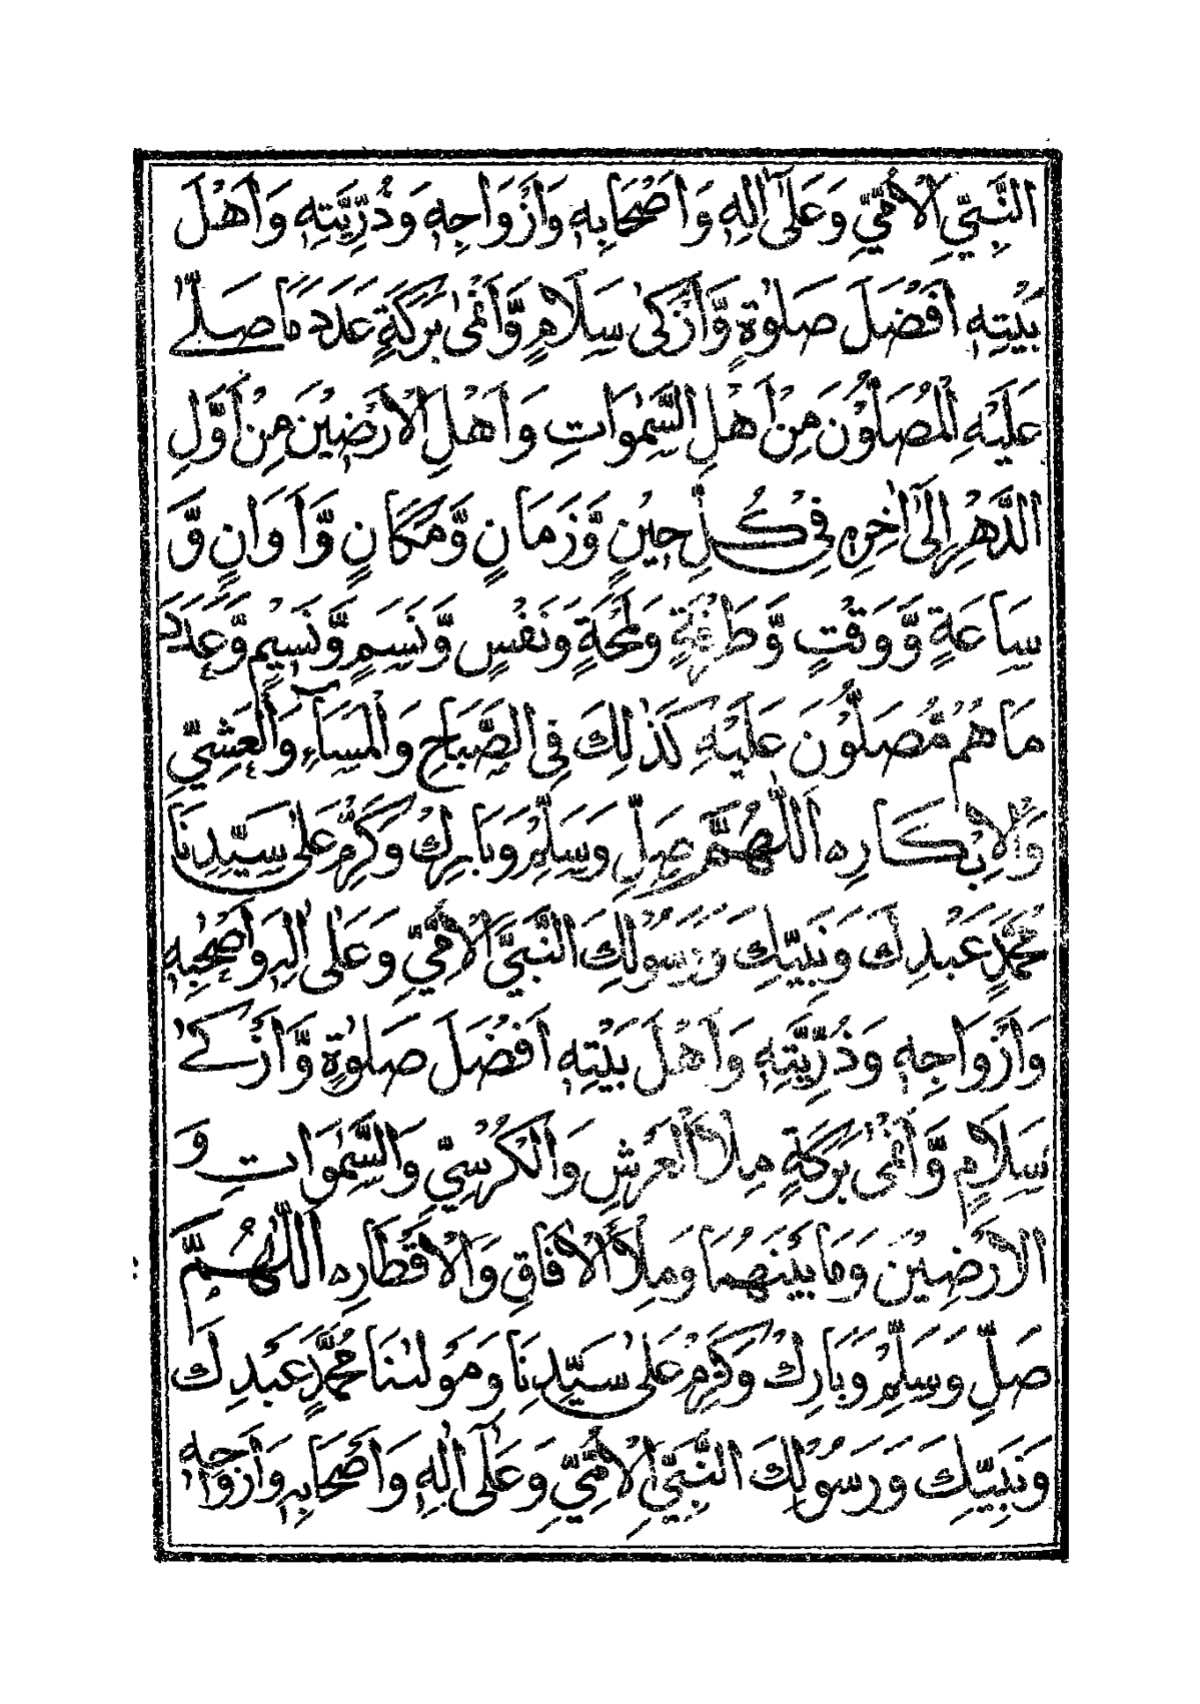 النَّبِيِّ الْاُمِّيِّ وَعَلٰٓى اٰلِهٖ وَاَصْحَابِهٖ وَاَزْوَاجِهٖ وَذُرِّيَّتِهٖ وَاَهْلَ
بَيْتِهٖ اَفْضَلَ صَلٰوةٍ وَّاَزْكٰى سَلَامٍ وَّاَنْمٰى بَرَكَةٍ عَدَدَ مَا صَلّٰے
عَلَيْهِ الْمُصَلُّوْنَ مِنْ اَهْلِ السَّمٰوَاتِ وَاَهْلِ الْاَرْضِيْنَ مِنْ اَوَّلِ
الدَّهْرِ اِلٰٓى اٰخِرِهٖ فِيْ كُلِّ حِيْنٍ وَّزَمَانٍ وَّمَكَانٍ وَّاَوَانٍ وَّ
سَاعَةٍ وَّوَقْتٍ وَّطَرْفَةٍ وَلَمْحَةٍ وَنَفْسٍ وَّنَسَمٍ وَّنَسِيْمٍ وَّعَدَدَ
مَا هُمْ مُّصَلُّوْنَ عَلَيْهِ كَذٰلِكَ فِي الصَّبَاحِ وَالْمَسَآءِ وَالْعَشِيِّ
وَالْاِبْكَارِ٥ اَللّٰهُمَّ صَلِّ وَسَلِّمْ وَبَارِكْ وَكَرِّمْ عَلٰى سَيِّدِنَا
مُحَمَّدٍ عَبْدِكَ وَنَبِيِّكَ وَرَسُوْلِكَ النَّبِيِّ الْاُمِّيِّ وَعَلٰى اٰلِهٖ وَاَصْحٰبِهٖ
وَاَزْوَاجِهٖ وَذُرِّيَّتِهٖ وَاَهْلَ بَيْتِهٖ اَفْضَلَ صَلٰوةٍ وَّاَزْكٰے
سَلَامٍ وَّاَنْمٰى بَرَكَةٍ مِلَأَ الْعَرْشِ وَالْكُرْسِيِّ وَالسَّمٰوَاتِ وَ
الْاَرْضِيْنَ وَمَا بَيْنَهُمَا وَمِلَأَ الْاٰفَاقِ وَالْاَقْطَارِ٥ اَللّٰهُمَّ
صَلِّ وَسَلِّمْ وَبَارِكْ وَكَرِّمْ عَلٰى سَيِّدِنَا وَمَوْلٰنَا مُحَمَّدٍ عَبْدِكَ
وَنَبِيِّكَ وَرَسُوْلِكَ النَّبِيِّ الْاُمِّيِّ وَعَلٰٓى اٰلِهٖ وَاَصْحَابِهٖ وَاَزْوَاجِهٖ